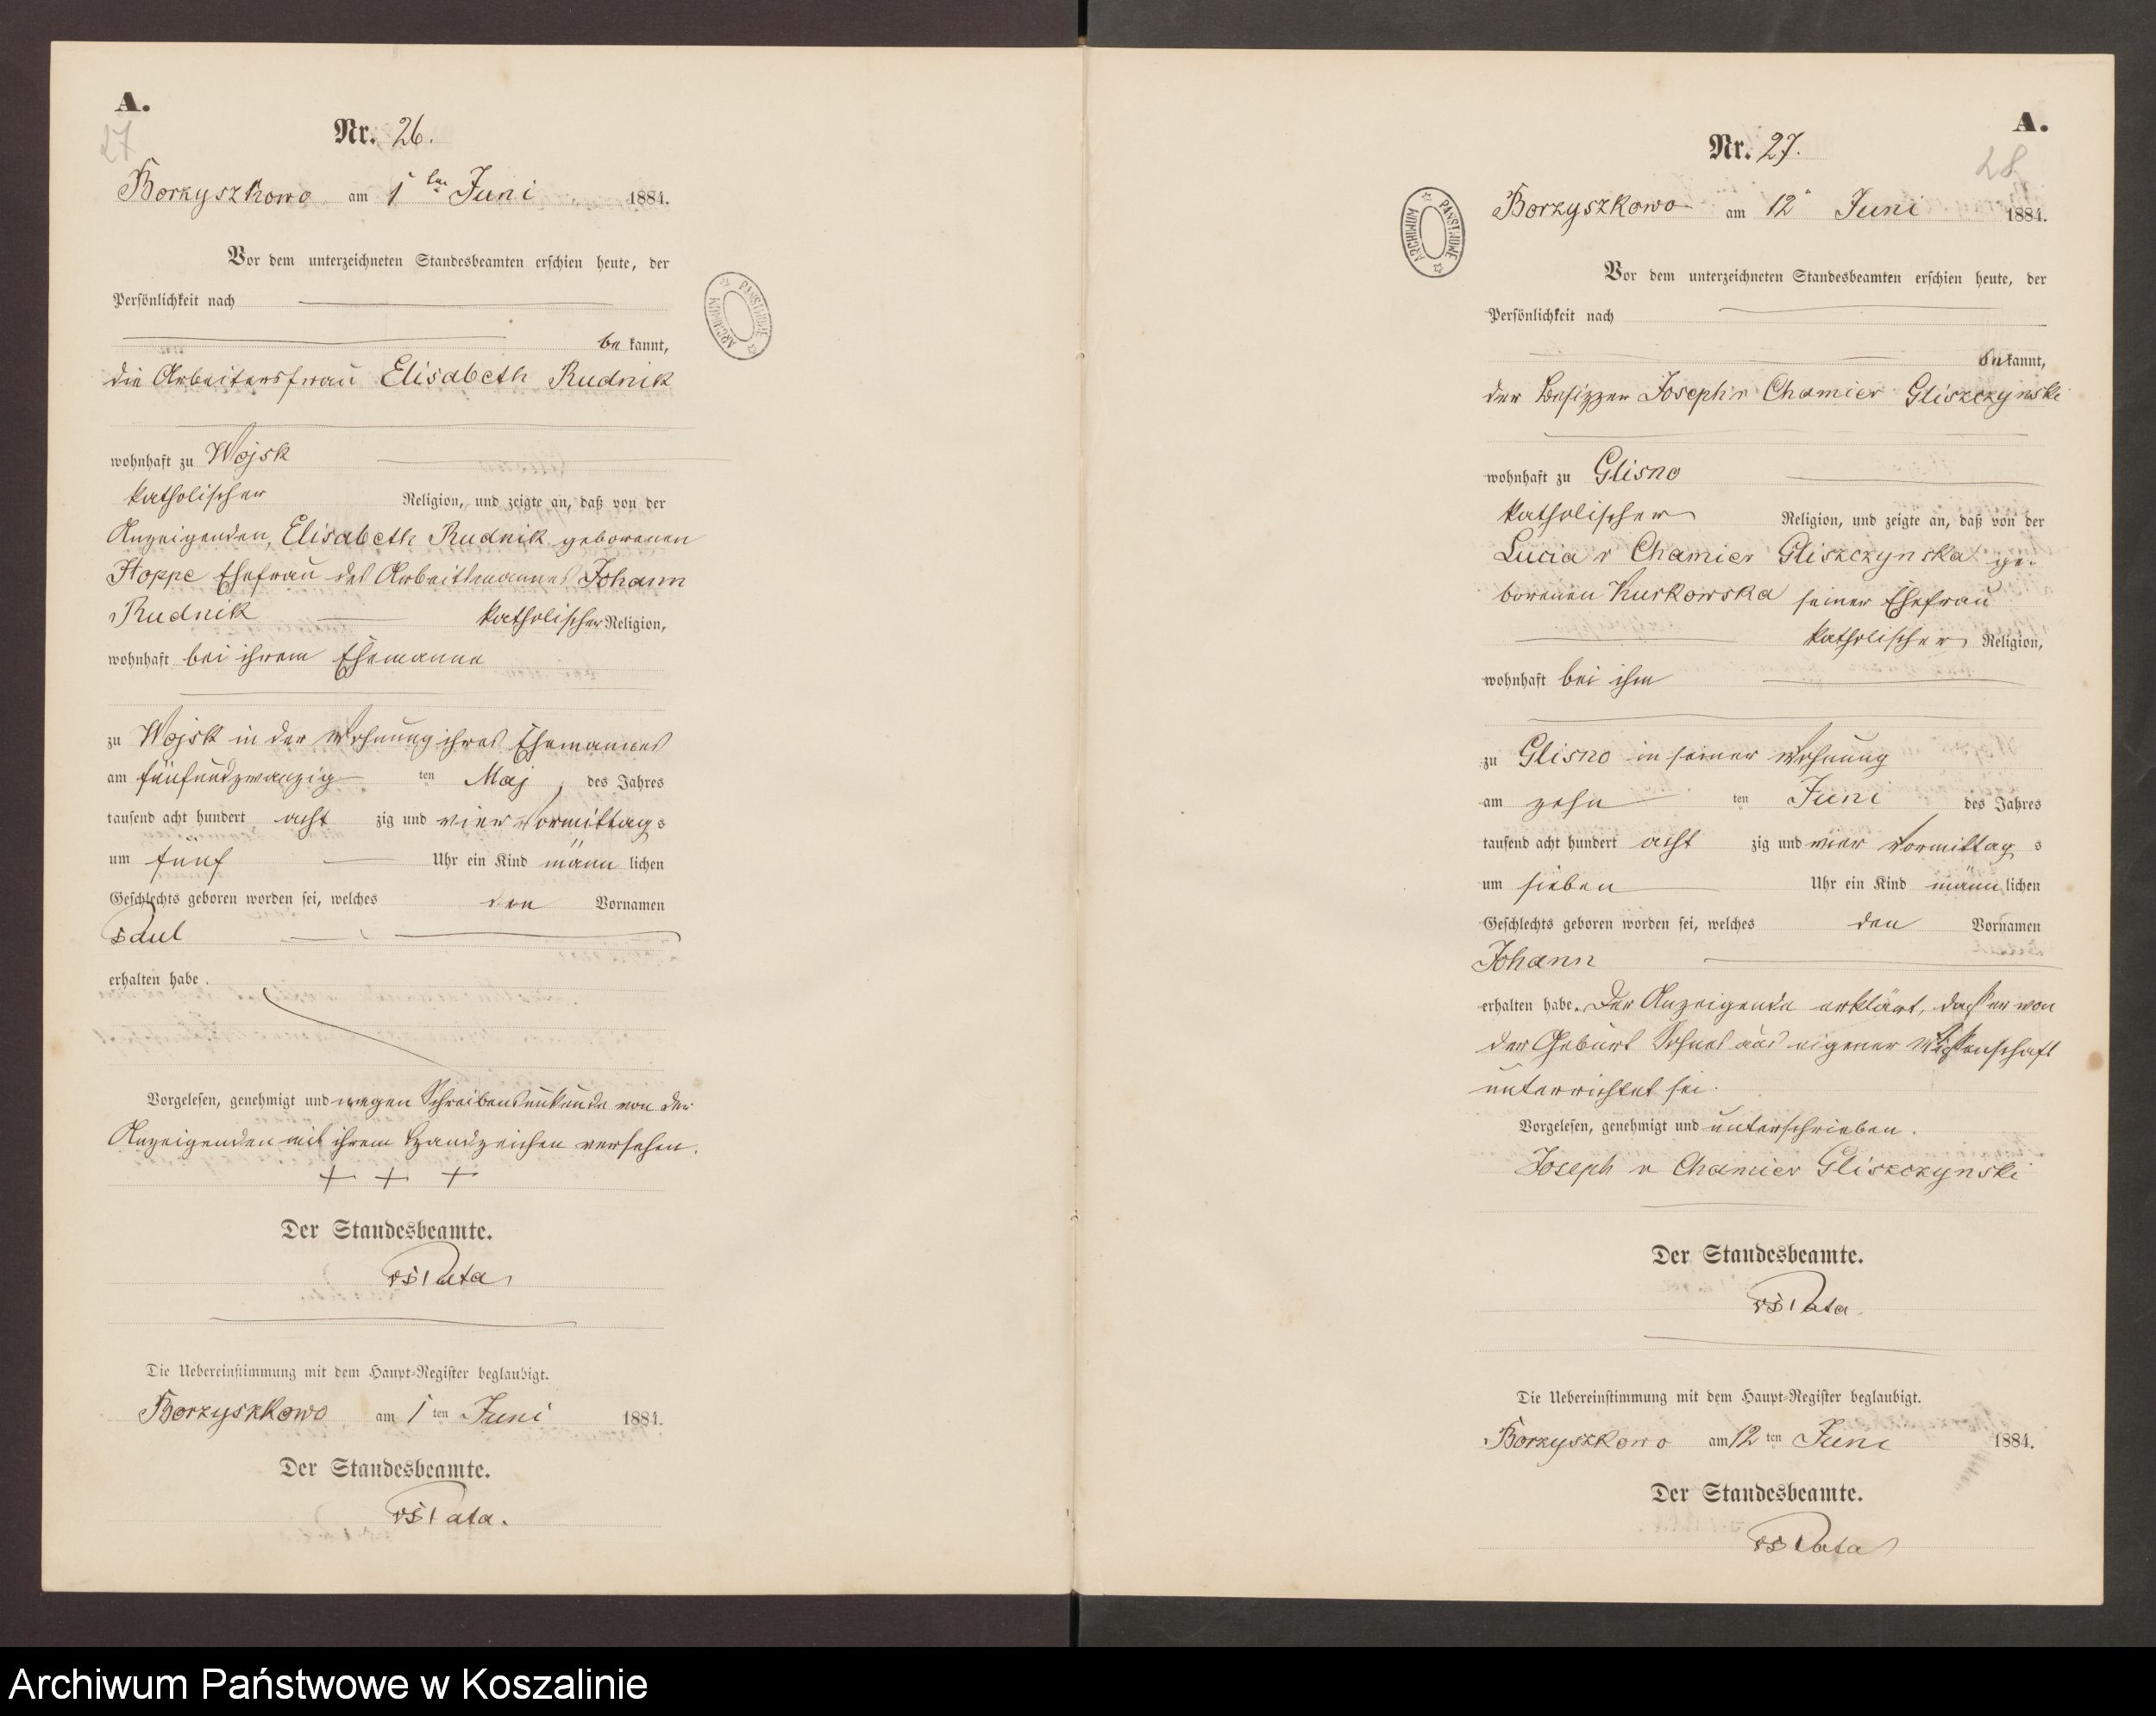 A.
27
Nr. 26.
Borzyszkowo am 1 ten Juni 1884.
Vor dem unterzeichneten Standesbeamten erschien heute, der
Persönlichkeit nach
be kannt,
die Arbeitersfrau Elisabeth Rudnik
wohnhaft zu Wojsk
katholischer Religion, und zeigte an, daß von der
Anzeigenden, Elisabeth Rudnik geborenen
Hoppe Ehefrau des Arbeitsmannes Johann
Rudnik katholischer Religion,
wohnhaft bei ihrem Ehemanne
zu Wojsk in der Wohnung ihres Ehemannes
am fünfundzwanzig ten Maj, des Jahres
tausend acht hundert acht zig und vier Vormittag s
um fünf Uhr ein Kind männ lichen
Geschlechts geboren worden sei, welches den Vornamen
Paul
erhalten habe.
Vorgelesen, genehmigt und wegen Schreibensunkunde von der
Anzeigenden mit ihrem Handzeichen versehen.
+ + +
Der Standesbeamte.
Pata
Die Uebereinstimmung mit dem Haupt-Register beglaubigt.
Borzyszkowo am 1 ten Juni 1884.
Der Standesbeamte.
Pata.
A.
28
Nr. 27.
Borzyszkowo am 12 Juni 1884.
Vor dem unterzeichneten Standesbeamten erschien heute, der
Persönlichkeit nach
be kannt,
der Besitzer Joseph v Chamier Gliszczynski
wohnhaft zu Glisno
katholischer Religion, und zeigte an, daß von der
Lucia v Chamier Gliszczynska ge-
borenen Kurkowska seiner Ehefrau
katholischer Religion,
wohnhaft bei ihm
zu Glisno in seiner Wohnung
am zehn ten Juni des Jahres
tausend acht hundert acht zig und vier Vormittag s
um sieben Uhr ein Kind männ lichen
Geschlechts geboren worden sei, welches den Vornamen
Johann
erhalten habe. Der Anzeigende erklärt, daß er von
der Geburt Sohnes aus eigener Wissenschaft
unterrichtet sei.
Vorgelesen, genehmigt und unterschrieben.
Joseph v Chamier Gliszczynski
Der Standesbeamte.
Pata
Die Uebereinstimmung mit dem Haupt-Register beglaubigt.
Borzyszkowo am 12 ten Juni 1884.
Der Standesbeamte.
Pata
ARCHIWUM PAŃSTWOWE
ARCHIWUM PAŃSTWOWE
Archiwum Państwowe w Koszalinie